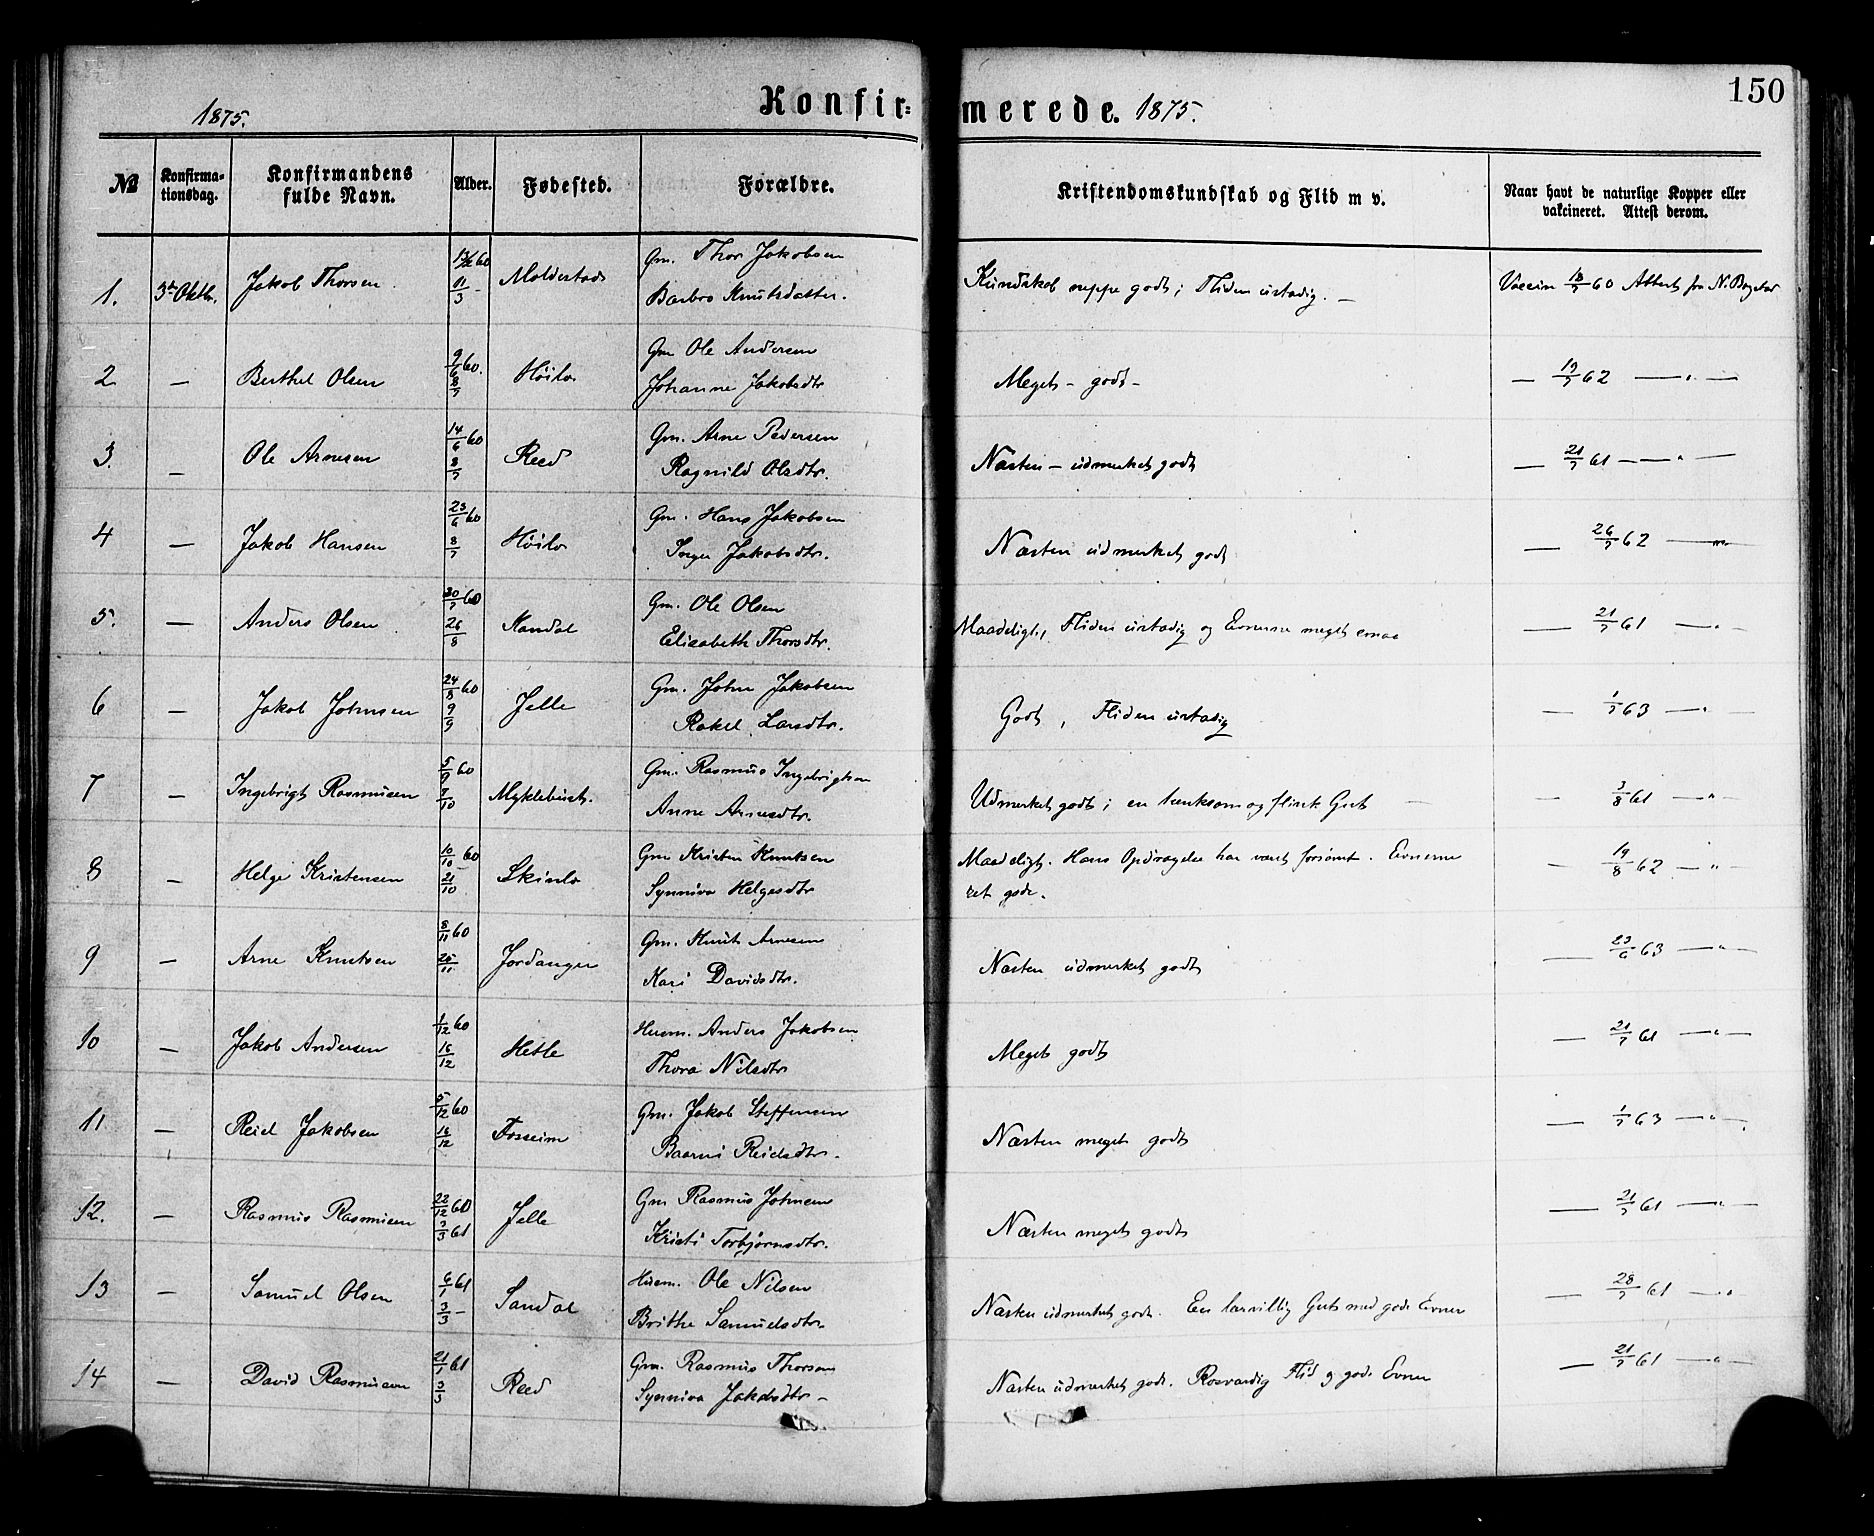 150
1875. Konfir= merede. 1875.
№ Konfirma- tionsdag. Konfirmandens fulde Navn. Alder. Fødested. Forældre. Kristendomskundskab og Flid m v. Naar havt de naturlige Kopper eller vakcineret. Attest derom.
1. 3die Oktbr. Jakob Thorsen 60 11/3 - Moldestad Gm. Thor Jakobsen
Barbro Knutsdatter. Kundskab neppe godt; Fliden ustadig. — Vaccin 18/7 60 Attest fra N.
2 — Berthel Olsen 9/6 60. 8/7 Høilo Gm Ole Andersen
Johanne Jakobsdtr Meget - godt - — 19/7 62 — " —
3. — Ole Arnesen 14/6 60 8/7 Reed Gm. Arne Pedersen
Ragnild Olsdtr. Næsten - udmerket godt — 21/7 61 — " —
4 — Jakob Hansen 23/6 60 8/7 Høilo Gm. Hans Jakobsen
Inger Jakobsdtr. Næsten udmerket godt — 26/7 62 — " —
5. — Anders Olsen 30/7 60 26/8 Nandal Gm. Ole Olsen
Elisabeth Thorsdtr. Maadeligt, Fliden ustadig og Evnerne meget smaa — 21/7 61 — " —
6 — Jakob Johnsen 24/8 60 9/9 Jelle Gm. John Jakobsen
Rakel Larsdtr. Godt, Fliden ustadig — 1/7 63 — " —
7 — Ingebrigt Rasmusen 5/9 60 Myklebust. Gm. Rasmus Ingebrigtsen
Anne Arnesdtr. Udmerket godt; en tænksom og flink Gut — — 3/8 61 — " —
8 — Helge Kristensen 10/10 60 21/10 Skinlo Gm Kristen Knutsen
Synniva Helgesdtr Maadeligt. Hans Opdragelse har været forsømt. Evnerne
ret gode. — 19/8 62 — " —
9 — Arne Knutsen 8/11 60 25/11 Jordanger Gm. Knut Arnesen
Kari Davidsdtr. Næsten udmerket godt — 23/6 63 — " —
10 — Jakob Andersen 1/12 60 16/12 Hetle Husm. Anders Jakobsen
Thora Nilsdtr Meget godt — 21/7 61 — " —
11 — Reiel Jakobsen 5/12 60 16/12 Fosseim Gm. Jakob Steffensen
Baarni Reielsdtr. Næsten meget godt — 1/7 63 — " —
12. — Rasmus Rasmusen 22/12 60 3/3 61 Jelle Gm Rasmus Johnsen
Kristi Torbjørnsdtr. Næsten meget godt — 21/7 61 — " —
13 — Samuel Olsen 6/1 61 3/3 - Sandal Husm. Ole Nilsen
Brithe Samuelsdtr. Næsten udmerket godt. En lærvillig Gut med gode Evner — 28/7 61 — " —
14 — David Rasmusen 21/1 61 3/3 Reed Gm. Rasmus Thorsen
Synniva Jakobsdtr - Næsten udmerket godt. Rosværdig Flid og gode Evner — 21/7 61 — " —